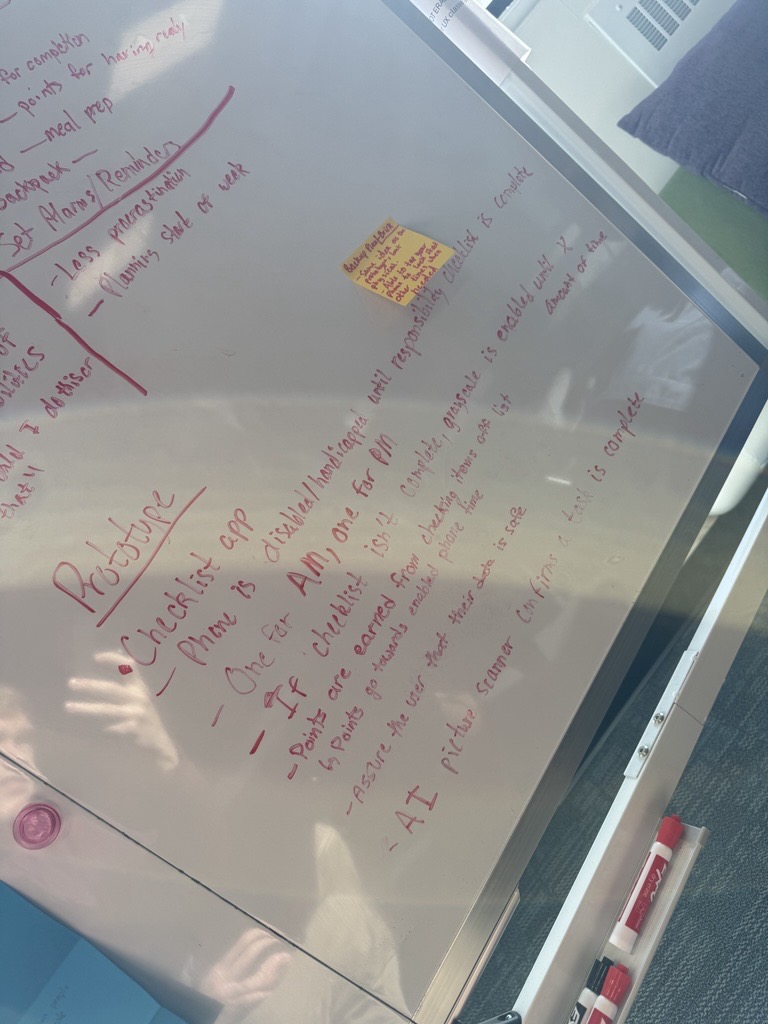 for completion
- points for having ready
- meal prep
backpack -
Set Alarms/Reminders
- Less procrastination
- Planning start of week
of
I do this or
that"
Prototype
• Checklist app
- Phone is disabled/handicapped until responsibility checklist is complete
- One for AM, one for PM
- If checklist isn't complete, grayscale is enabled until X
amount of time
- Points are earned from checking items off list
↳ Points go towards enabled phone time
- Assure the user that their data is safe
- AI picture scanner confirms a task is complete